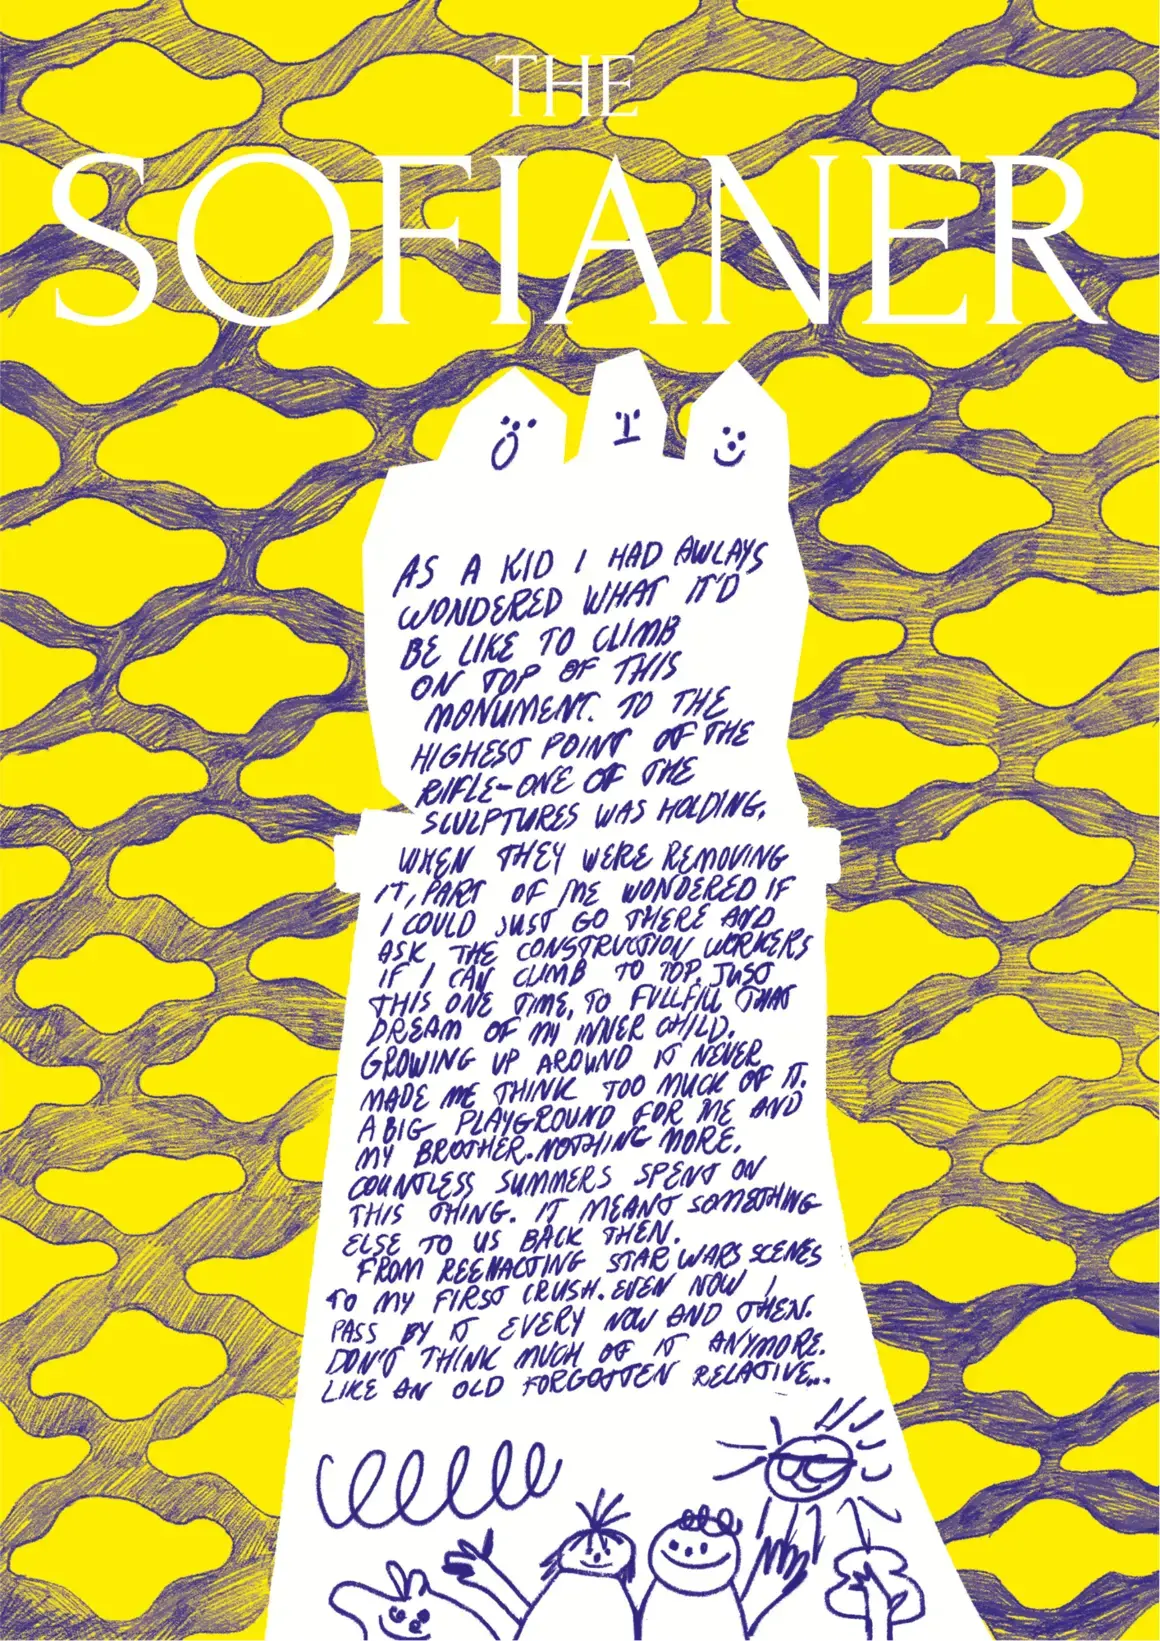 THE
SOFIANER
AS A KID I HAD AWLAYS
WONDERED WHAT IT'D
BE LIKE TO CLIMB
ON TOP OF THIS
MONUMENT. TO THE
HIGHEST POINT OF THE
RIFLE-ONE OF THE
SCULPTURES WAS HOLDING.
WHEN THEY WERE REMOVING
IT, PART OF ME WONDERED IF
I COULD JUST GO THERE AND
ASK THE CONSTRUCTION WORKERS
IF I CAN CLIMB TO TOP, JUST
THIS ONE TIME, TO FULLFILL THAT
DREAM OF MY INNER CHILD.
GROWING UP AROUND IT NEVER
MADE ME THINK TOO MUCH OF IT.
A BIG PLAYGROUND FOR ME AND
MY BROTHER. NOTHING MORE.
COUNTLESS SUMMERS SPENT ON
THIS THING. IT MEANT SOMETHING
ELSE TO US BACK THEN.
FROM REENACTING STAR WARS SCENES
TO MY FIRST CRUSH. EVEN NOW I
PASS BY IT EVERY NOW AND THEN.
DON'T THINK MUCH OF IT ANYMORE.
LIKE AN OLD FORGOTTEN RELATIVE...